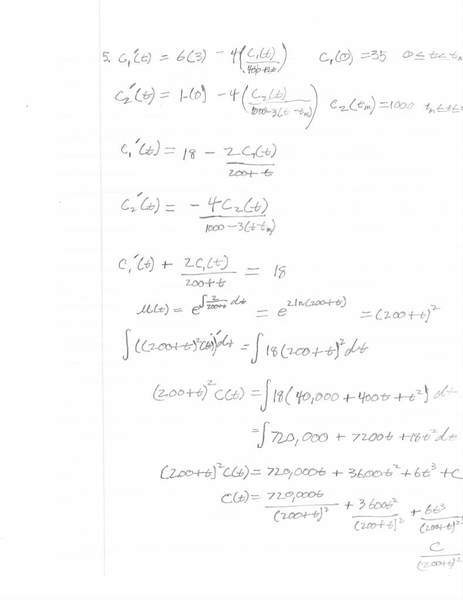 5. C₁'(t) = 6(3) - 4(C₁(t)/(400+2t)) C₁(0) = 35 0 ≤ t ≤ tₘ
C₂'(t) = 1·(0) - 4(C₂(t)/(1000-3(t-tₘ))) C₂(tₘ) = 1000 tₘ ≤ t ≤
C₁'(t) = 18 - 2C₁(t)/(200+t)
C₂'(t) = -4C₂(t)/(1000-3(t-tₘ))
C₁'(t) + 2C₁(t)/(200+t) = 18
μ(t) = e^(∫2/(200+t) dt) = e^(2ln(200+t)) = (200+t)²
∫((200+t)²C(t))'dt = ∫18(200+t)²dt
(200+t)²C(t) = ∫18(40,000+400t+t²)dt
= ∫720,000+7200t+18t²dt
(200+t)²C(t) = 720,000t + 3600t² + 6t³ + C
C(t) = 720,000t/(200+t)² + 3600t²/(200+t)² + 6t³/(200+t)²
C/(200+t)²